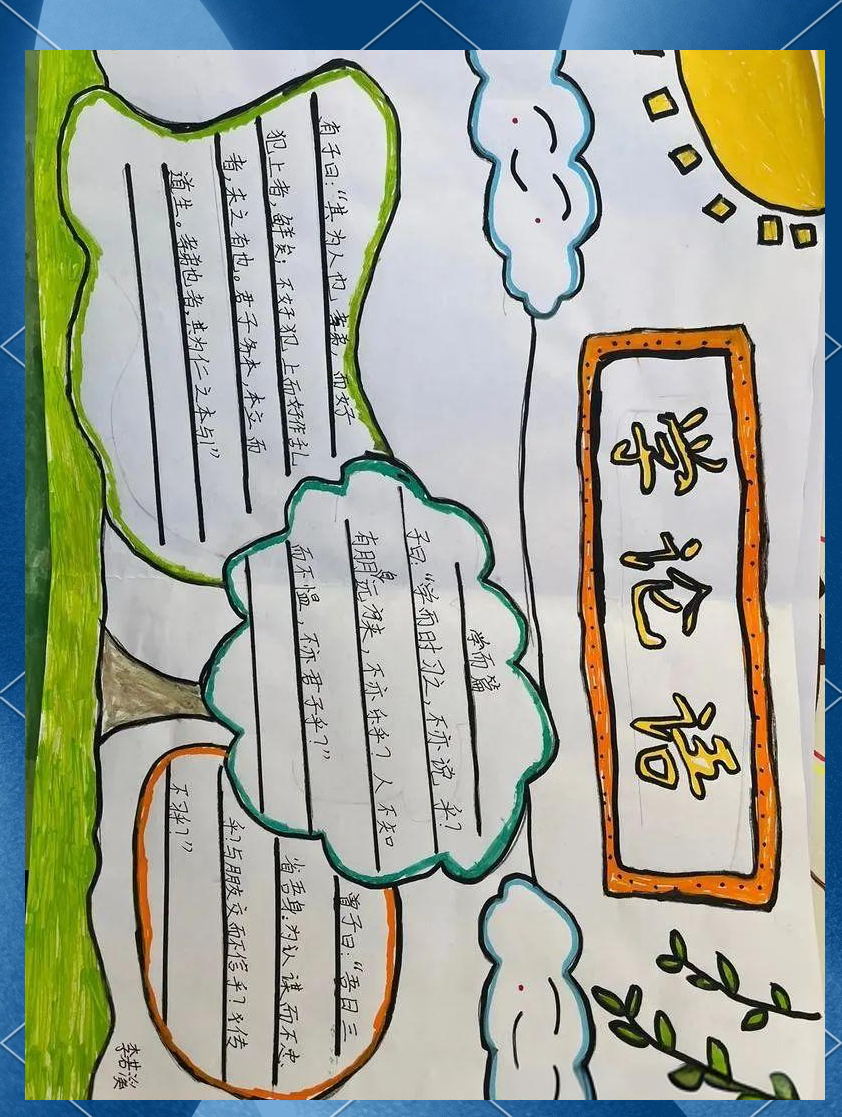 学论语
有子曰：“其为人也，孝弟，而好
犯上者，鲜矣；不好犯上而好作乱
者，未之有也。君子务本，本立而
道生。孝弟也者，其为仁之本与！”
学而篇
子曰：“学而时习之，不亦说乎？
有朋自远方来，不亦乐乎？人不知
而不愠，不亦君子乎？”
曾子曰：“吾日三
省吾身：为认谋而不忠
乎？与朋友交而不信乎？传
不习乎？”